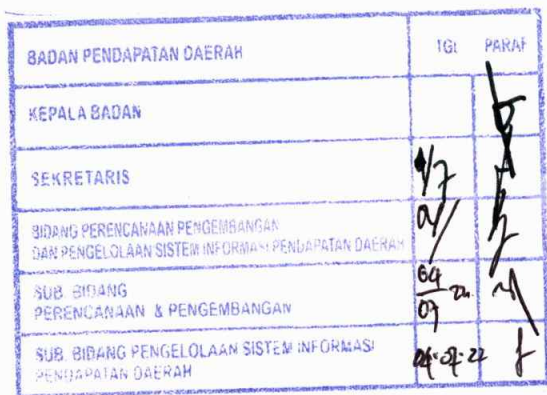 BADAN PENDAPATAN DAERAH TGL PARAF
KEPALA BADAN
SEKRETARIS 4/7
BIDANG PERENCANAAN PENGEMBANGAN
DAN PENGELOLAAN SISTEM INFORMASI PENDAPATAN DAERAH
SUB. BIDANG
PERENCANAAN & PENGEMBANGAN
SUB. BIDANG PENGELOLAAN SISTEM INFORMASI
PENDAPATAN DAERAH 04-07-22